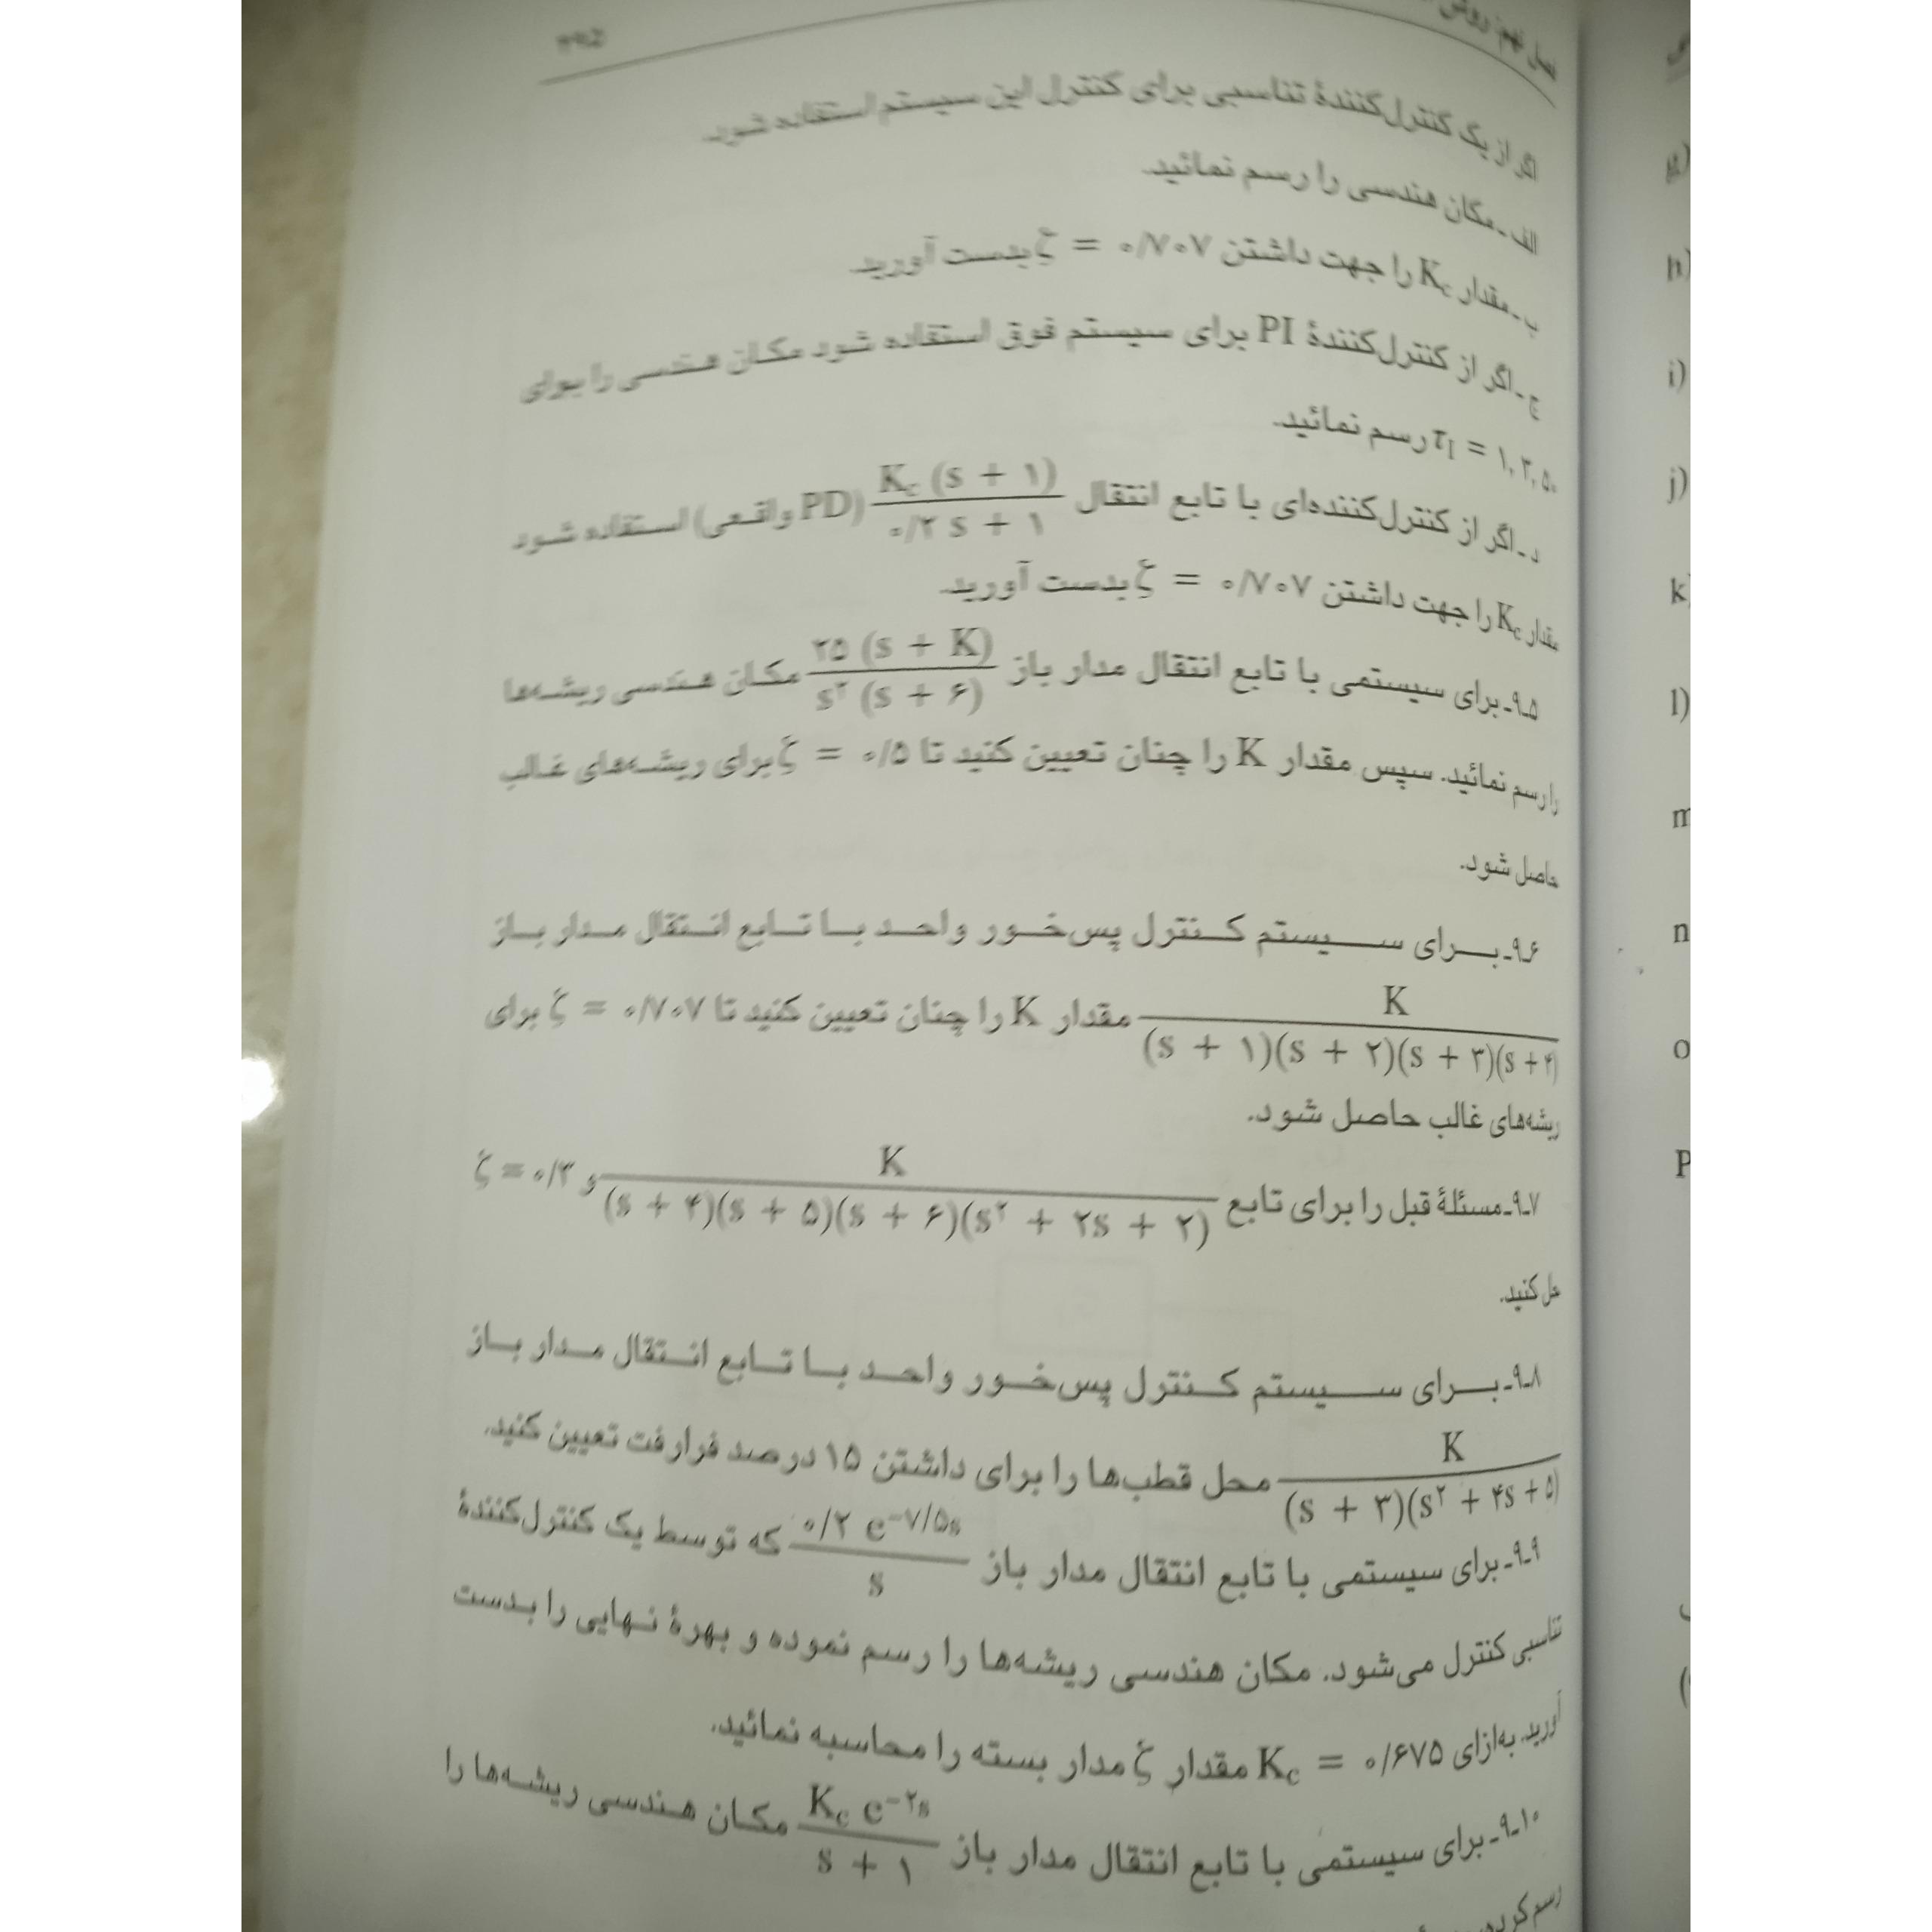 ۳۹۵
فصل نهم: روش
اگر از یک کنترل‌کنندهٔ تناسبی برای کنترل این سیستم استفاده شود.
الف ـ مکان هندسی را رسم نمائید.
ب ـ مقدار Kc را جهت داشتن ۰/۷۰۷ = ζ بدست آورید.
ج ـ اگر از کنترل‌کنندهٔ PI برای سیستم فوق استفاده شود مکان هندسی را برای
τI = ۱, ۳, ۵۰ رسم نمائید.
د ـ اگر از کنترل‌کننده‌ای با تابع انتقال Kc (s + ۱) / ۰/۲ s + ۱ (PD واقعی) استفاده شود
مقدار Kc را جهت داشتن ۰/۷۰۷ = ζ بدست آورید.
۹ـ۵ـ برای سیستمی با تابع انتقال مدار باز ۲۵ (s + K) / s² (s + ۶) مکان هندسی ریشه‌ها
را رسم نمائید. سپس مقدار K را چنان تعیین کنید تا ۰/۵ = ζ برای ریشه‌های غالب
حاصل شود.
۹ـ۶ـ برای سیستم کنترل پس‌خور واحد با تابع انتقال مدار باز
K / (s + ۱)(s + ۲)(s + ۳)(s + ۴) مقدار K را چنان تعیین کنید تا ۰/۷۰۷ = ζ برای
ریشه‌های غالب حاصل شود.
۹ـ۷ـ مسئلهٔ قبل را برای تابع K / (s + ۴)(s + ۵)(s + ۶)(s² + ۲s + ۲) و ζ = ۰/۳
حل کنید.
۹ـ۸ـ برای سیستم کنترل پس‌خور واحد با تابع انتقال مدار باز
K / (s + ۳)(s² + ۴s + ۵) محل قطب‌ها را برای داشتن ۱۵ درصد فرارفت تعیین کنید.
۹ـ۹ـ برای سیستمی با تابع انتقال مدار باز ۰/۲ e^−۷/۵s / s که توسط یک کنترل‌کنندهٔ
تناسبی کنترل می‌شود. مکان هندسی ریشه‌ها را رسم نموده و بهرهٔ نهایی را بدست
آورید. به‌ازای Kc = ۰/۶۷۵ مقدار ζ مدار بسته را محاسبه نمائید.
۹ـ۱۰ـ برای سیستمی با تابع انتقال مدار باز Kc e^−۲s / s + ۱ مکان هندسی ریشه‌ها را
رسم کرده
g)
h)
i)
j)
k)
l)
m
n
o
P